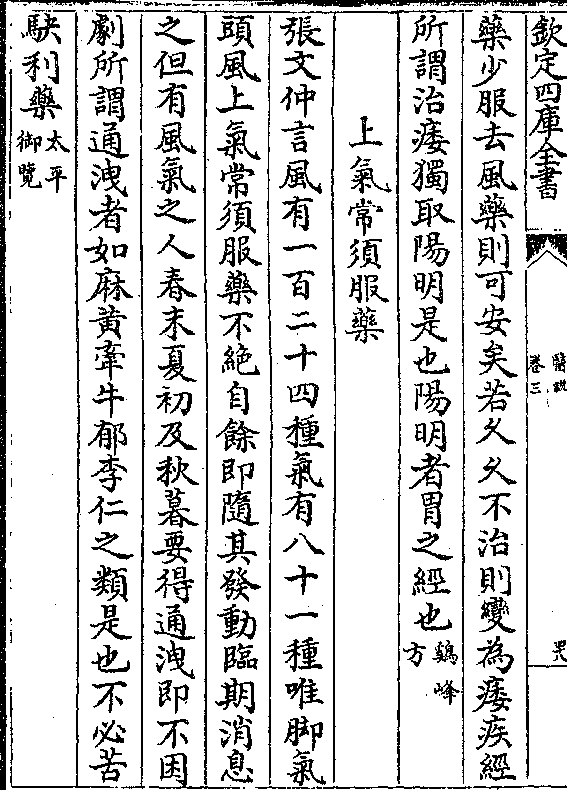 欽定四庫全書
醫說
卷三
哭
藥少服去風藥則可安矣若久久不治則變為痿疾經
所謂治痿獨取陽明是也陽明者胃之經也鷄峰
方
上氣常須服藥
張文仲言風有一百二十四種氣有八十一種唯脚氣
頭風上氣常須服藥不絶自餘即隨其發動臨期消息
之但有風氣之人春末夏初及秋暮要得通洩即不困
劇所謂通洩者如麻黃牽牛郁李仁之類是也不必苦
駃利藥太平
御覽